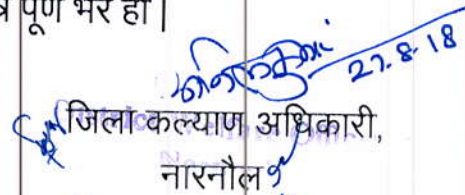 पूर्ण भरे हों।
27.8.18
जिला कल्याण अधिकारी,
नारनौल